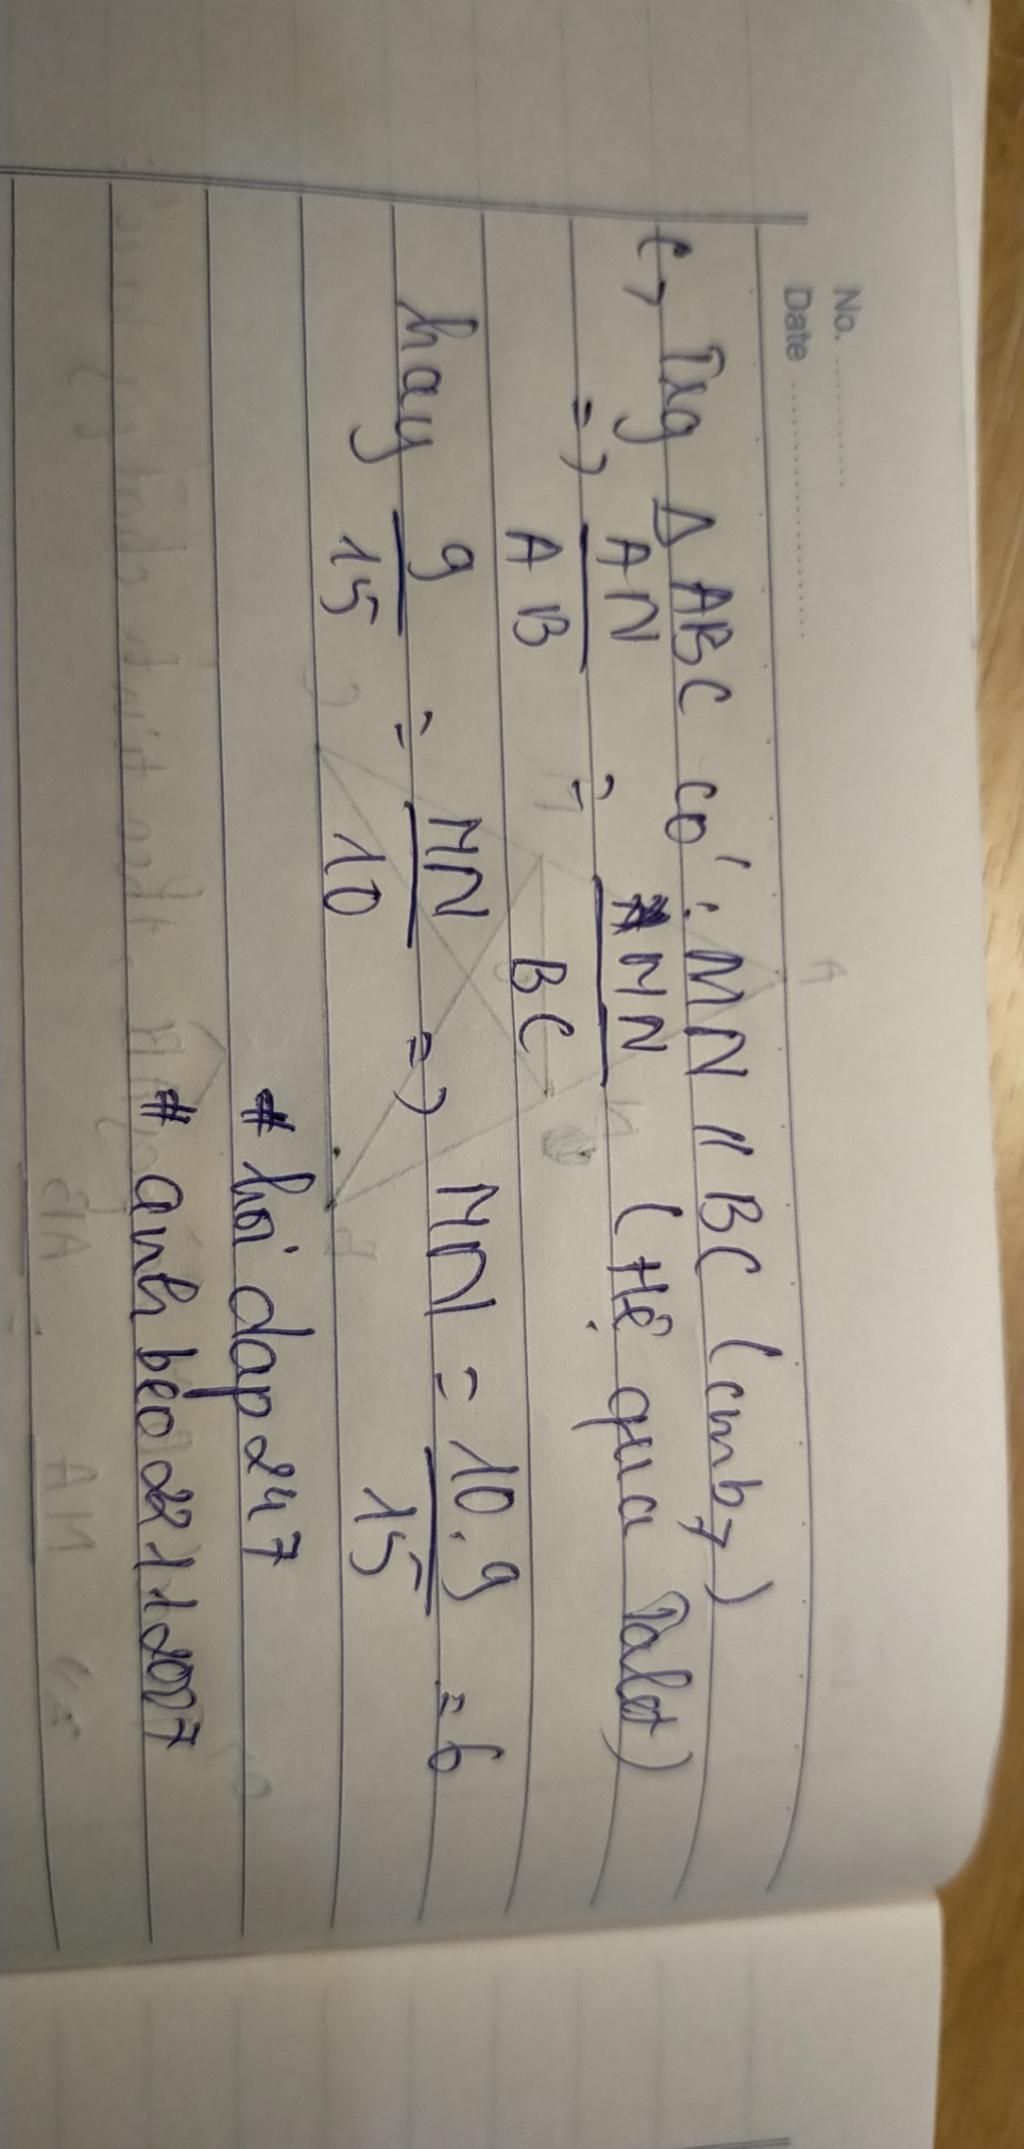 No. ............
Date ......................
c, Trg Δ ABC có : MN // BC (cmb)
=> AN/AB = MN/BC (Hệ qua Talet)
hay 9/15 = MN/10 => MN = 10.9/15 = 6
# hỏi dap247
# anh béo22112007